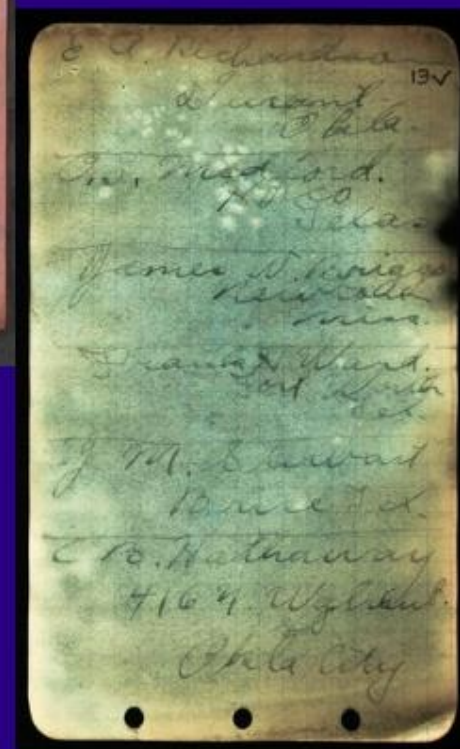 E A Richardson
13v
Durant
Okla.
Medford.
Texas
James N. Briggs
Miss.
Frank Ward.
Fort Worth
Tex.
J M. Stewart
Tex.
C B. Hathaway
416 N.
Okla City